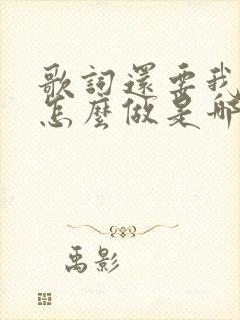 歌詞還要我
怎麼做是哪
禹影